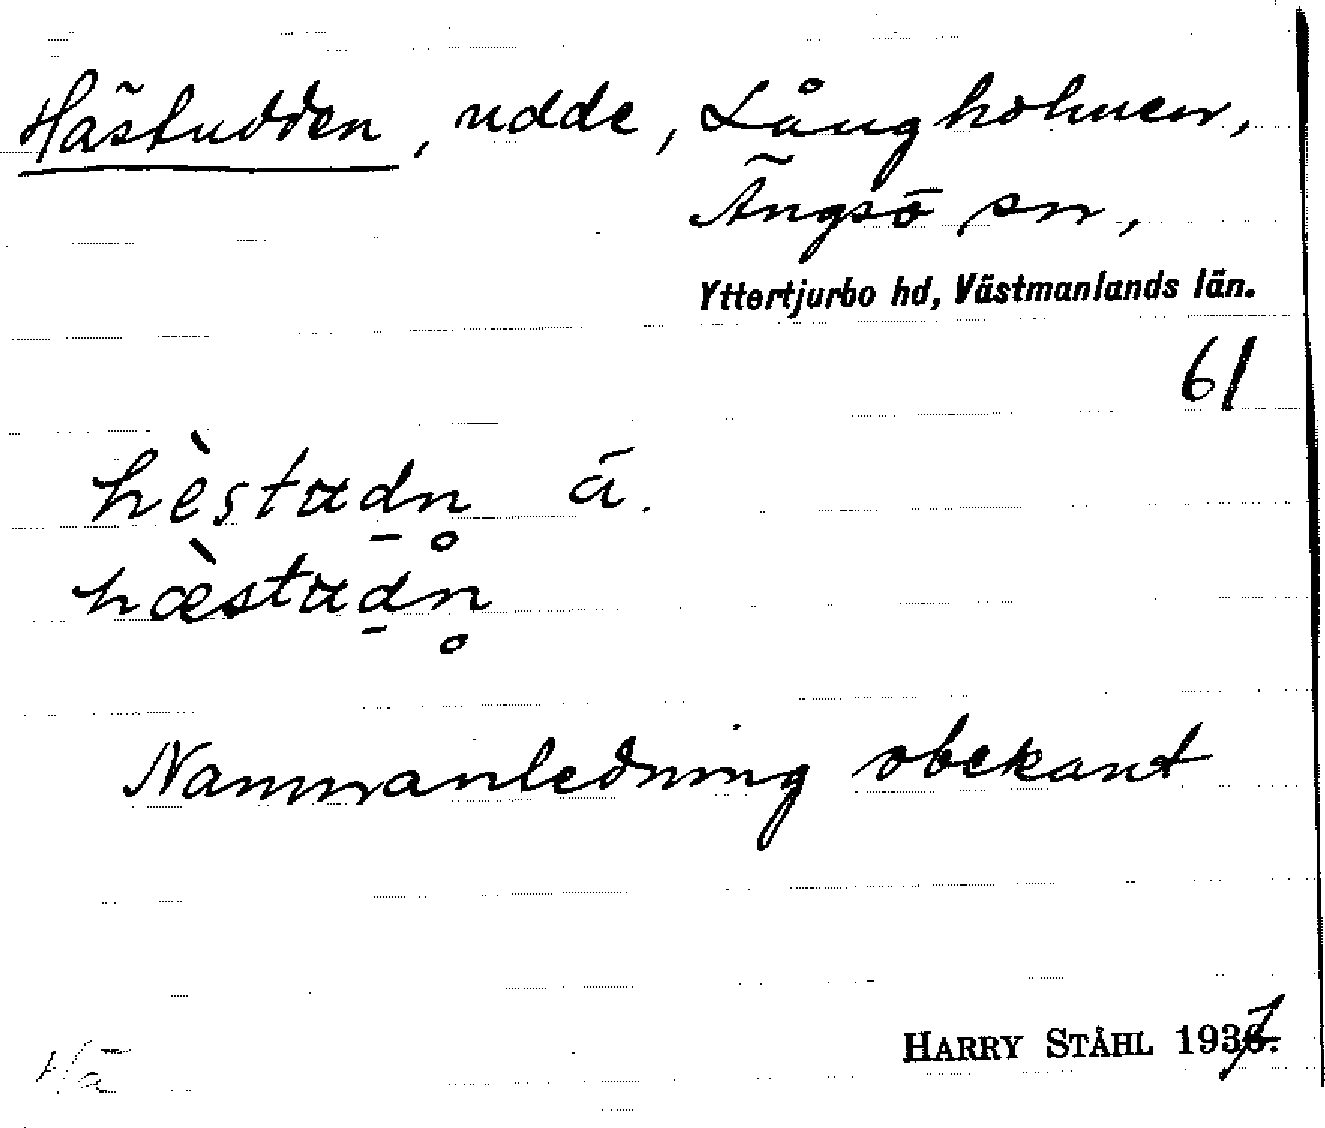 Hästudden, udde, Långholmen,
Ängsö sn,
Yttertjurbo hd, Västmanlands län.
61
hèstadn̥ ä.
hæ̀stadn̥
Namnanledning obekant
HARRY STÅHL 1937.
Hä